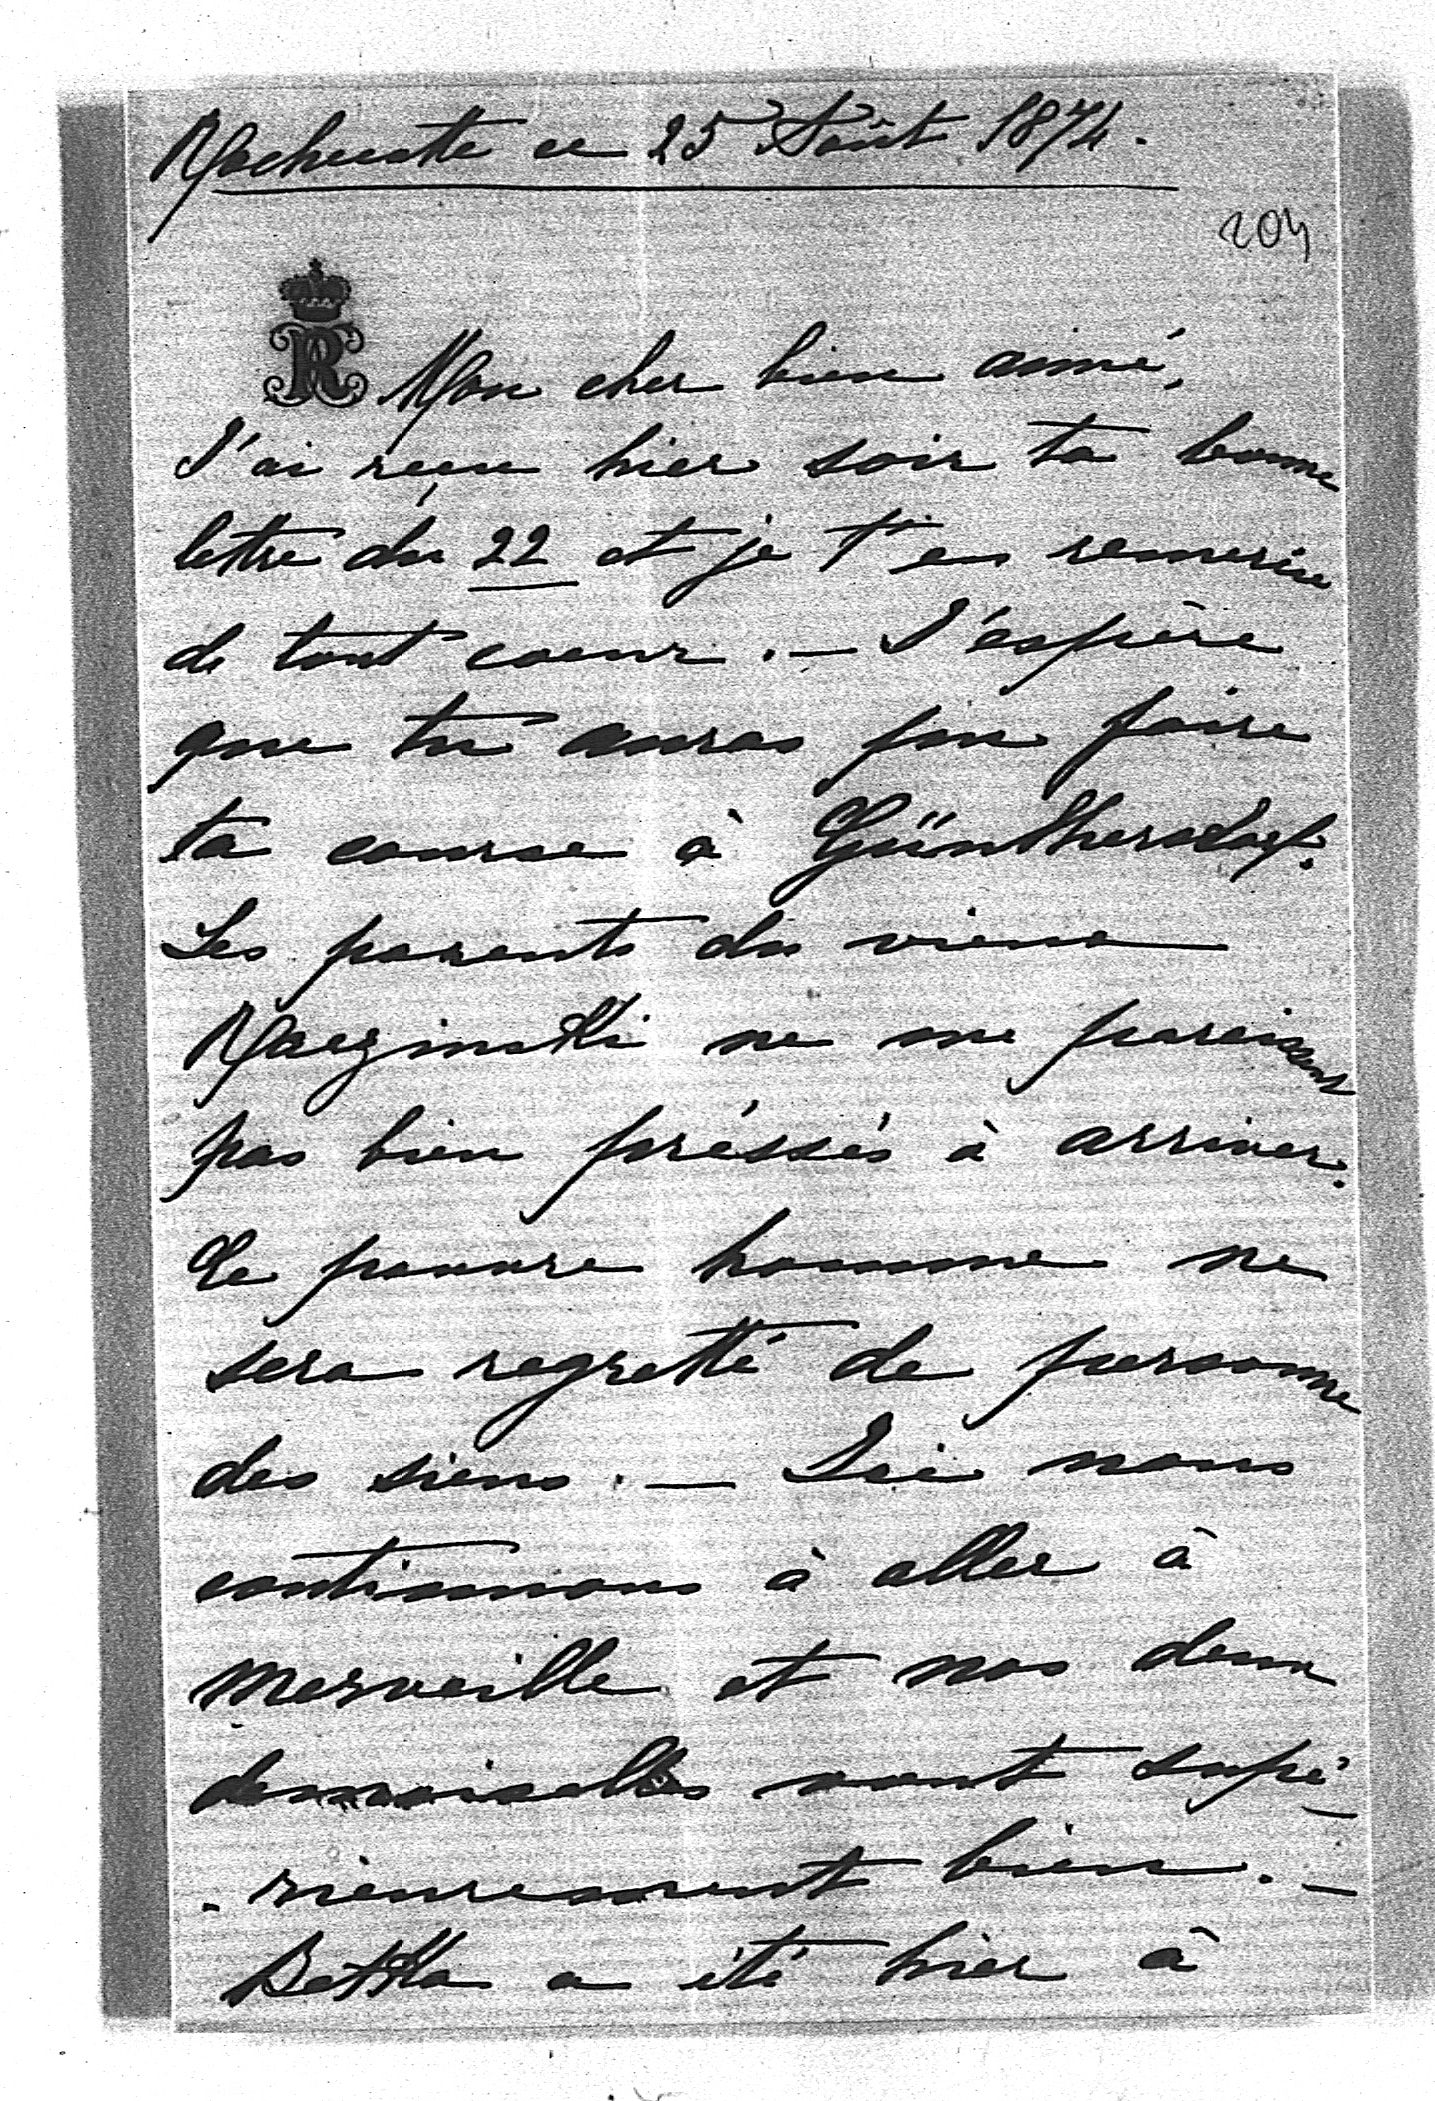 ce 25 Août 1874.
204
Mon cher bien aimé,
J'ai reçu hier soir ta bonne
lettre du 22 et je t'en remercie
de tout coeur. — J'espère
que tu auras pu faire
ta course à Günthersdorf.
Les parents du vieux
ne me paraissent
pas bien préssés à arriver.
Le pauvre homme ne
sera regretté de personne
des siens. — Ici nous
continuons à aller à
merveille et nos deux
demoiselles vont supé-
-rieurement bien. —
Betka a été hier à